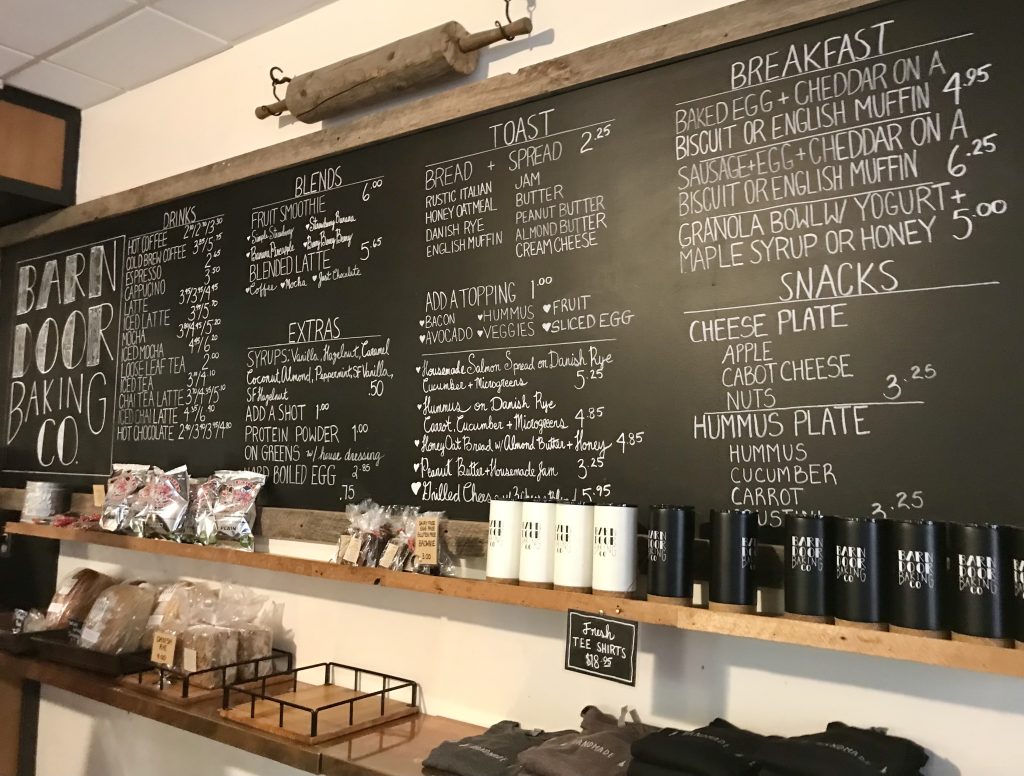 BARN
DOOR
BAKING
CO.
DRINKS
HOT COFFEE
COLD BREW COFFEE
ESPRESSO 2.65
CAPPUCINO 3.50
LATTE
ICED LATTE
MOCHA
ICED MOCHA
LOOSE LEAF TEA 2.00
ICED TEA
CHAI TEA LATTE
ICED CHAI LATTE
HOT CHOCOLATE
BLENDS
FRUIT SMOOTHIE 6.00
♥ Simple Strawberry ♥ Strawberry Banana
♥ Banana Pineapple ♥ Berry Berry Berry
BLENDED LATTE 5.65
♥ Coffee ♥ Mocha ♥ Just Chocolate
EXTRAS
SYRUPS: Vanilla, Hazelnut, Caramel
Coconut, Almond, Peppermint, SF Vanilla,
SF Hazelnut .50
ADD A SHOT 1.00
PROTEIN POWDER 1.00
ON GREENS w/ house dressing
2.85
HARD BOILED EGG
.75
TOAST
BREAD + SPREAD 2.25
RUSTIC ITALIAN JAM
HONEY OATMEAL BUTTER
DANISH RYE PEANUT BUTTER
ENGLISH MUFFIN ALMOND BUTTER
CREAM CHEESE
ADD A TOPPING 1.00
♥ BACON ♥ HUMMUS ♥ FRUIT
♥ AVOCADO ♥ VEGGIES ♥ SLICED EGG
♥ Housemade Salmon Spread on Danish Rye
Cucumber + Microgreens 5.25
♥ Hummus on Danish Rye
Carrot, Cucumber + Microgreens 4.85
♥ Honey Oat Bread w/ Almond Butter + Honey 4.85
♥ Peanut Butter + Housemade Jam 3.25
♥ Grilled Cheese 5.95
BREAKFAST
BAKED EGG + CHEDDAR ON A
BISCUIT OR ENGLISH MUFFIN 4.95
SAUSAGE + EGG + CHEDDAR ON A
BISCUIT OR ENGLISH MUFFIN 6.25
GRANOLA BOWL W/ YOGURT +
MAPLE SYRUP OR HONEY 5.00
SNACKS
CHEESE PLATE
APPLE
CABOT CHEESE
NUTS 3.25
HUMMUS PLATE
HUMMUS
CUCUMBER
CARROT
3.25
DAIRY FREE
EGG FREE
GLUTEN FREE
BROWNIE
DANISH
RYE
BARN
DOOR
BAKING
CO
BARN
DOOR
BAKING
CO
BARN
DOOR
BAKING
CO
BARN
DOOR
BAKING
CO
Fresh
TEE SHIRTS
$18.95
HANDMADE
HANDMADE
HANDMADE